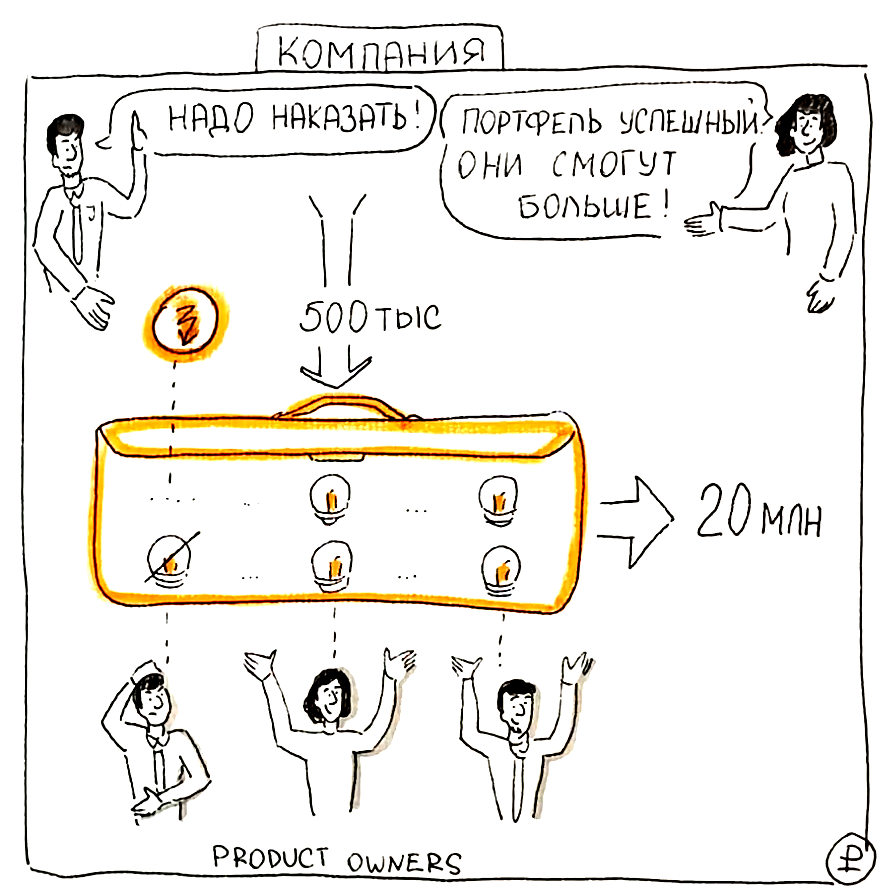 КОМПАНИЯ
НАДО НАКАЗАТЬ!
ПОРТФЕЛЬ УСПЕШНЫЙ.
ОНИ СМОГУТ
БОЛЬШЕ!
500 ТЫС
20 МЛН
PRODUCT OWNERS
₽